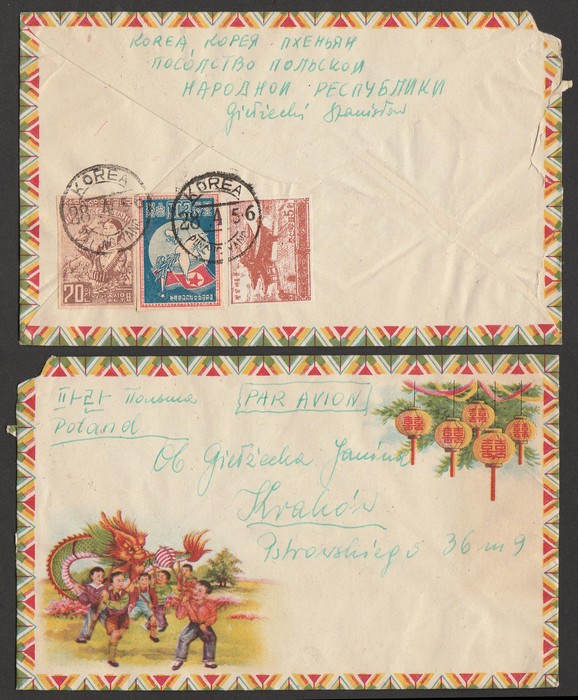 KOREA, КОРЕЯ ПХЕНЬЯН
ПОСОЛСТВО ПОЛЬСКОЙ
НАРОДНОЙ РЕСПУБЛИКИ
Giełżecki Stanisław
KOREA
28 A 56
KOREA
28 A 56
PYNG YANG
20
파란 Польша
Poland
PAR AVION
Ob. Giełżecka Janina
Kraków
Pstrowskiego 36 m 9
囍 囍 囍 囍 囍